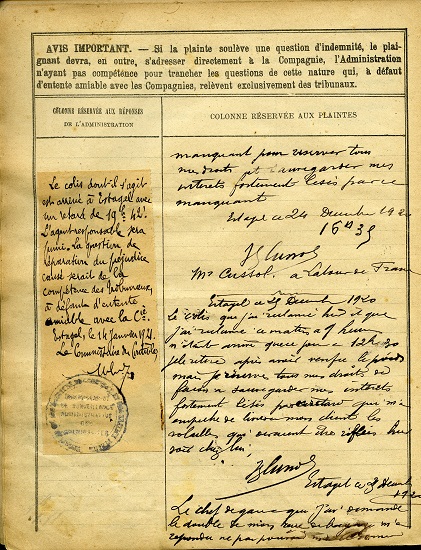 AVIS IMPORTANT. — Si la plainte soulève une question d'indemnité, le plai-
gnant devra, en outre, s'adresser directement à la Compagnie, l'Administration
n'ayant pas compétence pour trancher les questions de cette nature qui, à défaut
d'entente amiable avec les Compagnies, relèvent exclusivement des tribunaux.
COLONNE RÉSERVÉE AUX RÉPONSES
DE L'ADMINISTRATION
Le colis dont il s'agit
est arrivé à Estagel avec
un retard de 19h 42'.
L'agent responsable sera
puni. La question de
réparation du préjudice
causé serait de la
compétence des Tribunaux,
à défaut d'entente
amiable avec la Cie.
Estagel, le 14 Janvier 1921.
Le Commissaire de
COLONNE RÉSERVÉE AUX PLAINTES
manquant pour réserver tous
mes droits et sauvegarder mes
intérêts fortement lésés par ce
manquant
Estagel ce 24 Décembre 1920
16h 35
Mr a Latour de France
Estagel ce 25 Décembre 1920
le colis que j'ai réclamé hier et que
j'ai réclamé ce matin a 9 heures
n'étant arrivé que ce jour a 12h30
je le retire après avoir vérifié le poids
mais je réserve tous mes droits de
façon a sauvegarder mes intérêts
fortement lésés par ce retard qui m'a
empêché de livrer a mes clients les
volailles qui devaient être hier
soir chez lui
Estagel ce 25 Décembre
1920
Le chef de gare que j'ai demandé
le double de mon
répondu ne pas pouvoir me donner